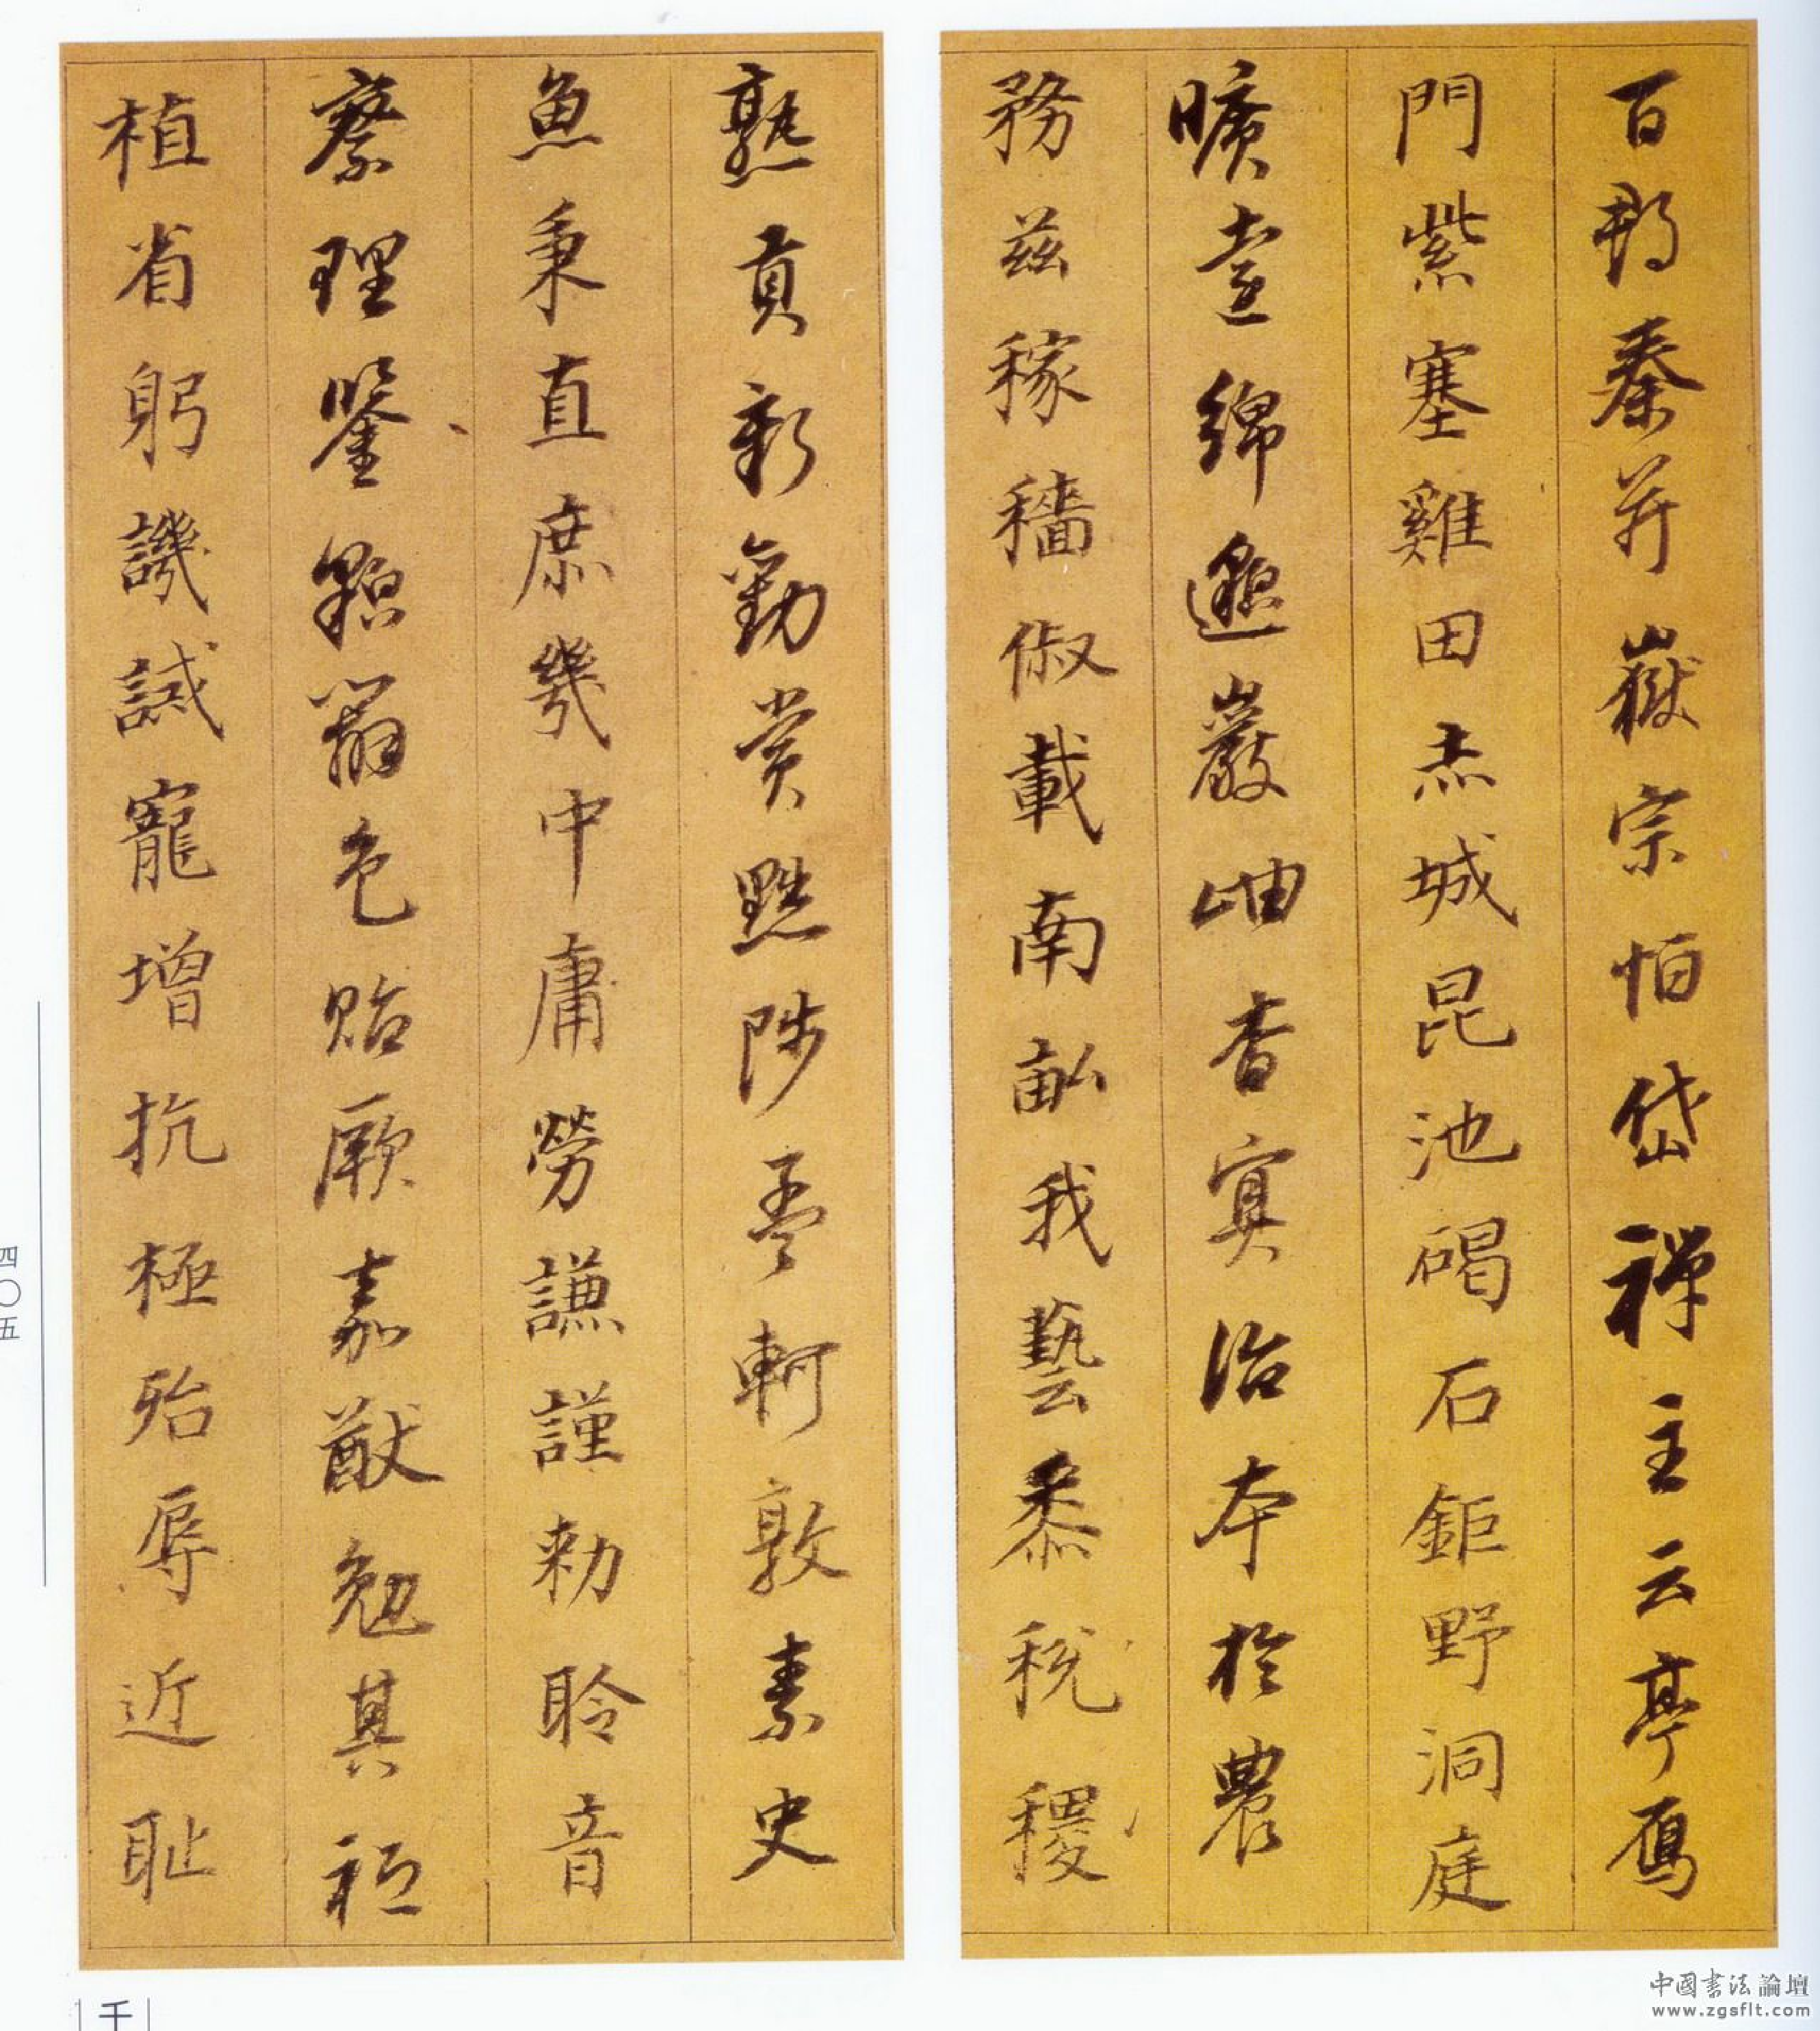 百郡秦并嶽宗恒岱禪主云亭鴈
門紫塞雞田赤城昆池碣石鉅野洞庭
曠遠綿邈巖岫杳冥治本於農
務兹稼穡俶載南畝我藝黍稅稷
熟貢新勸賞黜陟孟軻敦素史
魚秉直庶幾中庸勞謙謹勅聆音
察理鑒貌辯色貽厥嘉猷勉其祗
植省躬譏誡寵增抗極殆辱近耻
四〇五
千
中國書法論壇
www.zgsflt.com